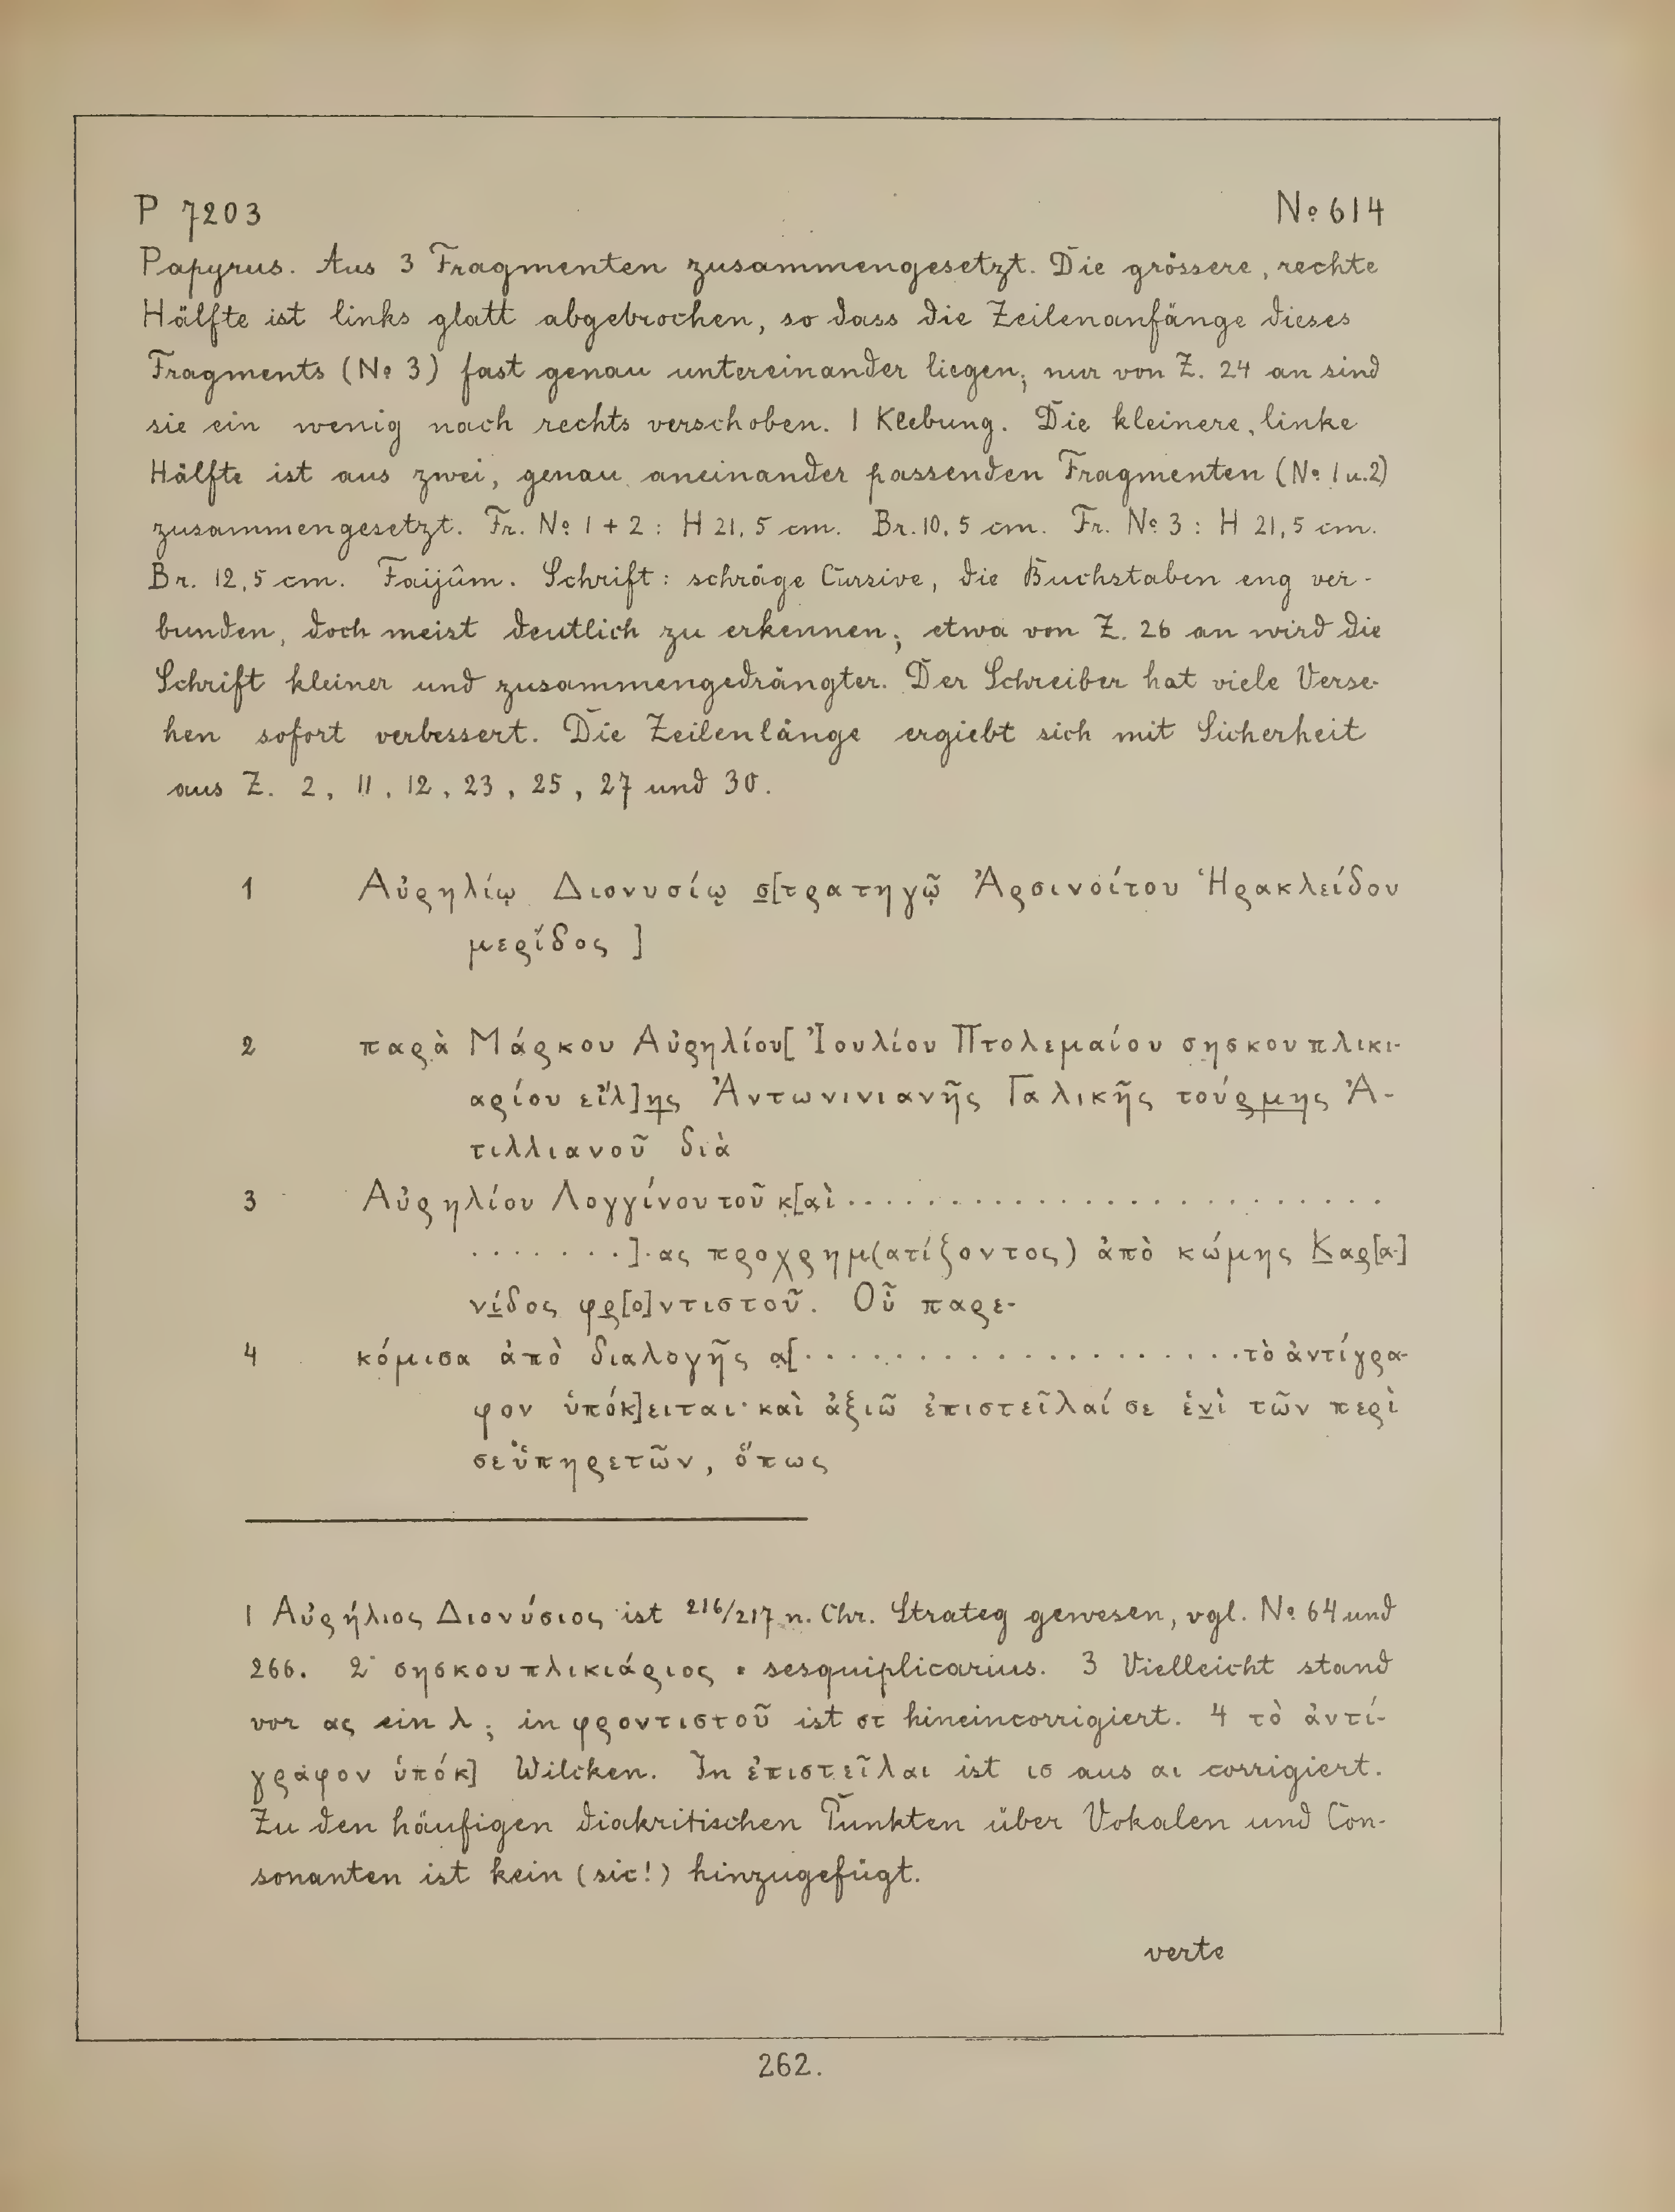 P 7203 № 614
Papyrus. Aus 3 Fragmenten zusammengesetzt. Die grössere, rechte
Hälfte ist links glatt abgebrochen, so dass die Zeilenanfänge dieses
Fragments (№ 3) fast genau untereinander liegen; nur von Z. 24 an sind
sie ein wenig nach rechts verschoben. 1 Klebung. Die kleinere, linke
Hälfte ist aus zwei, genau aneinander passenden Fragmenten (№ 1 u. 2)
zusammengesetzt. Fr. № 1 + 2 : H 21,5 cm. Br. 10,5 cm. Fr. № 3 : H 21,5 cm.
Br. 12,5 cm. Faijûm. Schrift: schräge Cursive, die Buchstaben eng ver-
bunden, doch meist deutlich zu erkennen; etwa von Z. 26 an wird die
Schrift kleiner und zusammengedrängter. Der Schreiber hat viele Verse-
hen sofort verbessert. Die Zeilenlänge ergiebt sich mit Sicherheit
aus Z. 2, 11, 12, 23, 25, 27 und 30.
1 Αὐρηλίῳ Διονυσίῳ σ[τρατηγῷ Ἀρσινοίτου Ἡρακλείδου
μερίδος ]
2 παρὰ Μάρκου Αὐρηλίου[ Ἰουλίου Πτολεμαίου σησκουπλικι-
αρίου εἴλ]ης Ἀντωνινιανῆς Γαλικῆς τούρμης Ἀ-
τιλλιανοῦ διὰ
3 Αὐρηλίου Λογγίνου τοῦ κ[αὶ . . . . . . . . . . . . . . . . . . . . .
. . . . . . .]. ας προχρημ(ατίζοντος) ἀπὸ κώμης Καρ[α-]
νίδος φρ[ο]ντιστοῦ. Οὗ παρε-
4 κόμισα ἀπὸ διαλογῆς α[. . . . . . . . . . . . . . . . . . . τὸ ἀντίγρα-
φον ὑπόκ]ειται· καὶ ἀξιῶ ἐπιστεῖλαί σε ἑνὶ τῶν περὶ
σε ὑπηρετῶν, ὅπως
1 Αὐρήλιος Διονύσιος ist 216/217 n. Chr. Strateg gewesen, vgl. № 64 und
266. 2 σησκουπλικιάριος = sesquiplicarius. 3 Vielleicht stand
vor ας ein λ; in φροντιστοῦ ist στ hineincorrigiert. 4 τὸ ἀντί-
γραφον ὑπόκ] Wilcken. In ἐπιστεῖλαι ist ισ aus αι corrigiert.
Zu den häufigen diakritischen Punkten über Vokalen und Con-
sonanten ist kein (sic!) hinzugefügt.
verte
262.